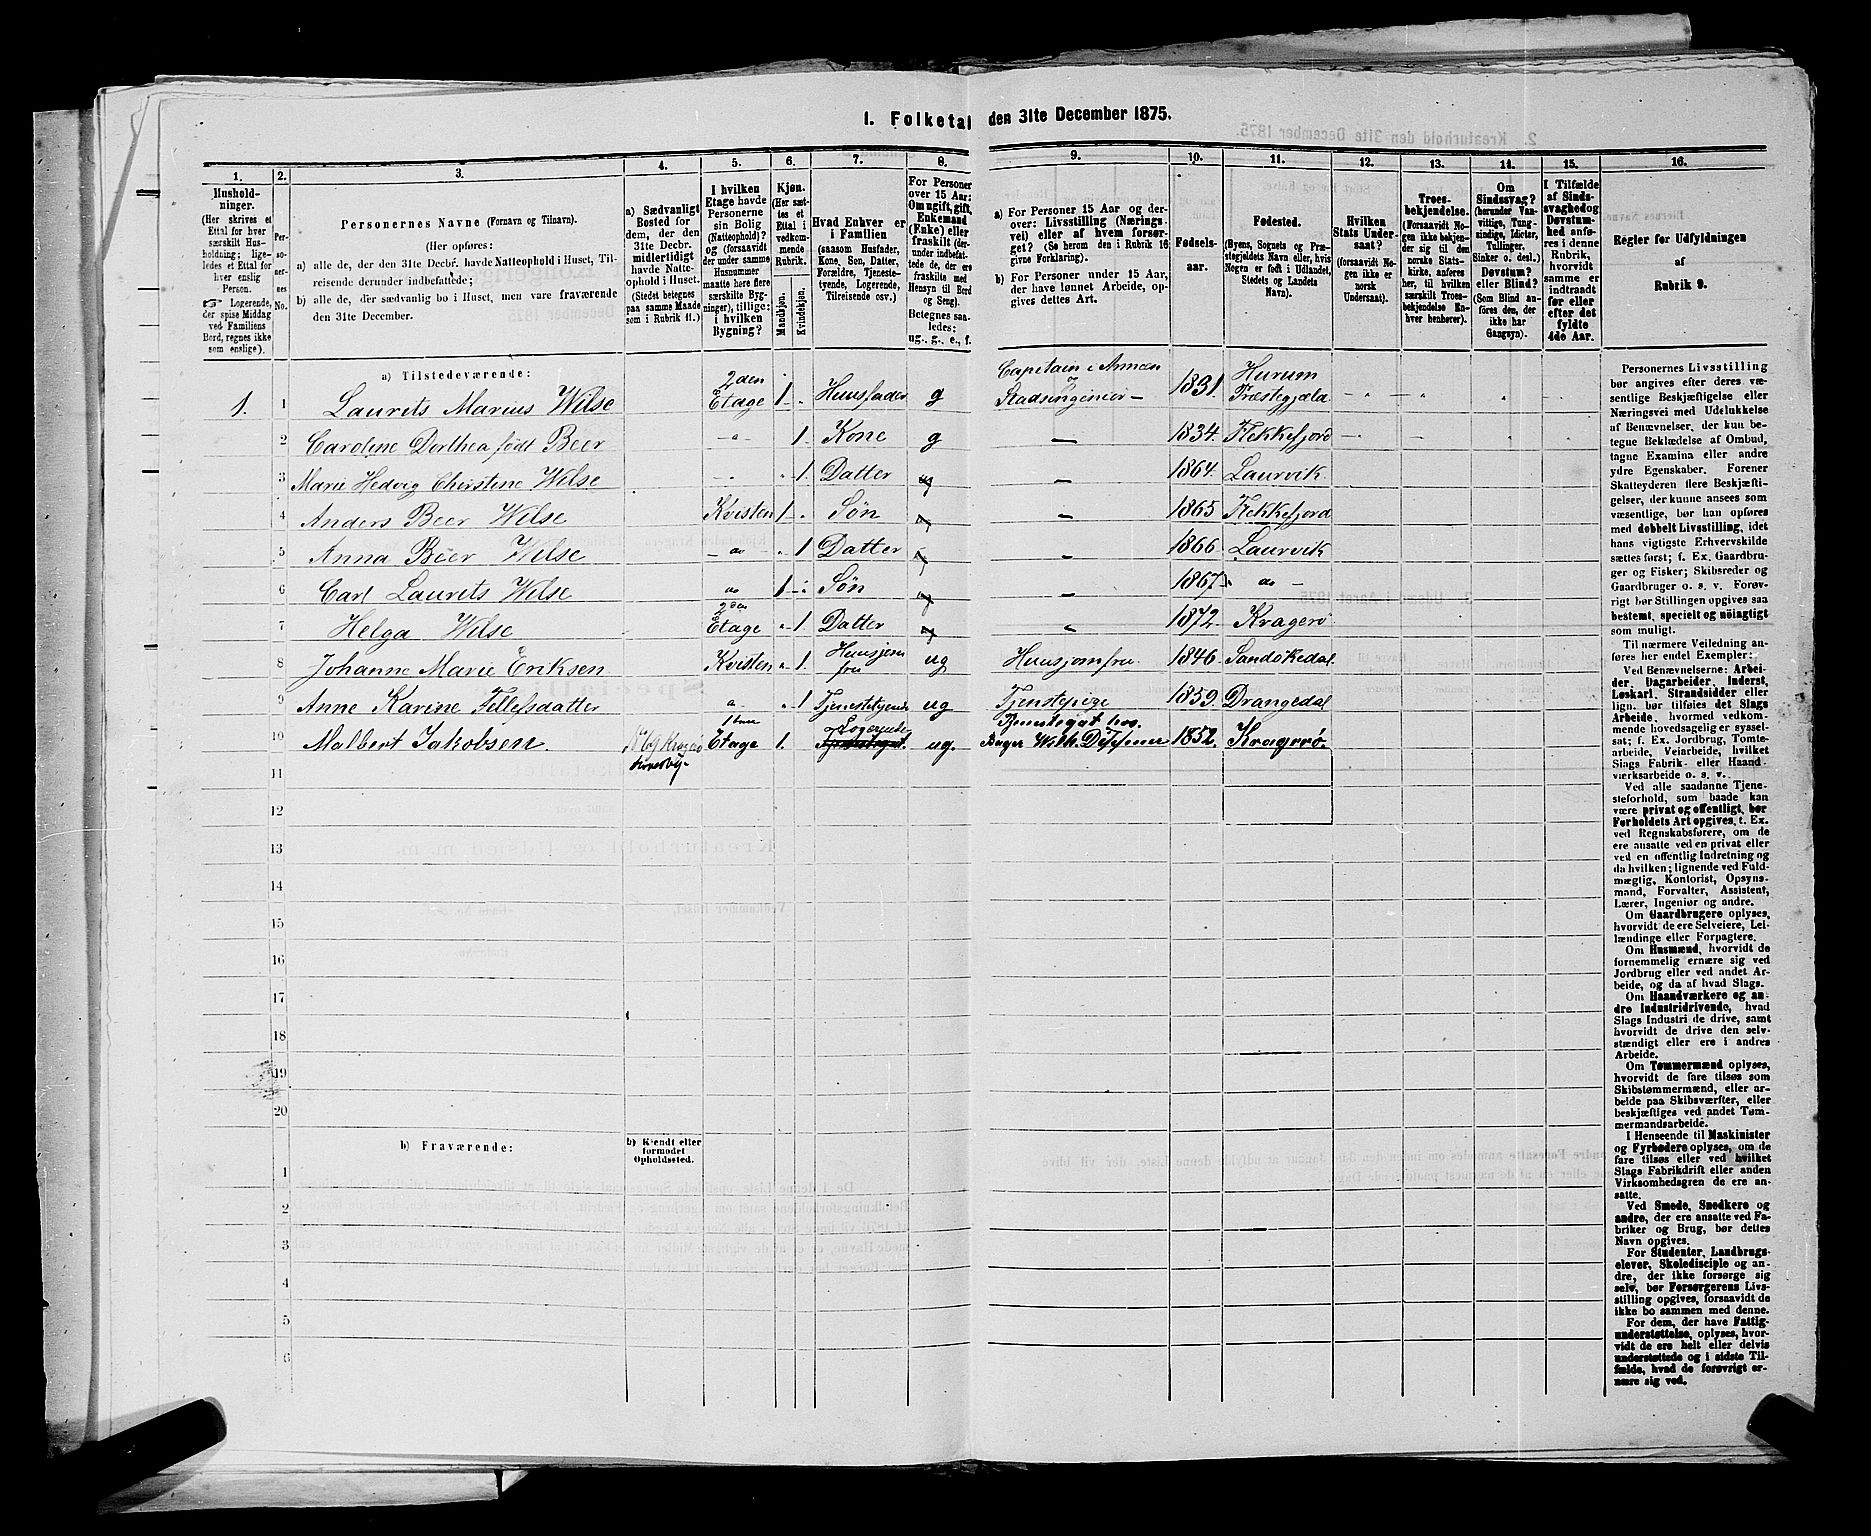 1. Folketal den 31te December 1875.
1. 2. 3. 4. 5. 6. 7. 8. 9. 10. 11. 12. 13. 14. 15. 16.
Hushold-
ninger.
(Her skrives et
Ettal for hver
særskilt Hus-
holdning; lige-
ledes et Ettal for
hver enslig
Person.
☞ Logerende,
der spise Middag
ved Familiens
Bord, regnes ikke
som enslige).
Per-
sone-
nes
No.
Personernes Navne (Fornavn og Tilnavn).
(Her opføres:
a) alle de, der den 31te Decbr. havde Natteophold i Huset, Til-
reisende derunder indbefattede;
b) alle de, der sædvanlig bo i Huset, men vare fraværende
den 31te December.
a) Sædvanligt
Bosted for
dem, der den
31te Decbr.
midlertidigt
havde Natte-
ophold i Huset.
(Stedet betegnes
paa samme Maade
som i Rubrik 11.)
I hvilken
Etage havde
Personerne
sin Bolig
(Natteophold)?
og (forsaavidt
der under samme
Husnummer
maatte høre flere
særskilte Byg-
ninger), tillige:
i hvilken
Bygning?
Kjøn.
(Her sæt-
tes et
Ettal i
vedkom-
mende
Rubrik.
Mandkjøn.
Kvindekjøn.
Hvad Enhver er
i Familien
(saasom Husfader,
Kone, Søn, Datter,
Forældre, Tjeneste-
tyende, Logerende,
Tilreisende osv.)
For Personer
over 15 Aar:
Om ugift, gift,
Enkemand
(Enke) eller
fraskilt (der-
under indbefat-
tede de, der ere
fraskilte med
Hensyn til Bord
og Seng).
Betegnes saa-
ledes:
ug., g., e., f.
a) For Personer 15 Aar og der-
over: Livsstilling (Nærings-
vei) eller af hvem forsør-
get? (Se herom den i Rubrik 16
givne Forklaring).
b) For Personer under 15 Aar,
der have lønnet Arbeide, op-
gives dettes Art.
Fødsels-
aar.
Fødested.
(Byens, Sognets og Præ-
stegjeldets Navn eller, hvis
Nogen er født i Udlandet,
Stedets og Landets
Navn).
Hvilken
Stats Under-
saat?
(forsaavidt No-
gen ikke er
norsk
Undersaat).
Troes-
bekjendelse.
(Forsaavidt No-
gen ikke bekjen-
der sig til den
norske Stats-
kirke, anføres
her, til hvilken
særskilt Troes-
bekjendelse En-
hver henhører).
Om
Sindssvag?
(herunder Van-
vittige, Tung-
sindige, Idioter,
Tullinger,
Sinker o. desl.)
Døvstum?
eller Blind?
(Som Blind an-
føres den, der
ikke har
Gangsyn).
I Tilfælde
af Sinds-
svaghed og
Døvstum-
hed anfø-
res i denne
Rubrik,
hvorvidt
samme er
indtraadt
før eller
efter det
fyldte
4de Aar.
Regler for Udfyldningen
af
Rubrik 9.
a) Tilstedeværende:
1. 1 Laurits Marius Wilse 2den Etage 1 Huusfader g Capitain i Armeen og Stadsingeniør 1831 Hurum Præstegjeld
2 Caroline Dorthea født Beer 1 Kone g 1834 Flekkefjord
3 Marie Hedvig Christine Wilse 1 Datter ug 1864 Laurvik
4 Anders Beer Wilse Kvisten 1 Søn ug 1865 Flekkefjord
5 Anna Beer Wilse do 1 Datter ug 1866 Laurvik
6 Carl Laurits Wilse do 1 Søn ug 1867 do
7 Helga Wilse 2den Etage 1 Datter ug 1872 Kragerø
8 Johanne Marie Eriksen Kvisten 1 Huusjomfru ug Huusjomfru 1846 Sandøkedal
9 Anne Karine Tellefsdatter 1 Tjenestetyende ug Tjenestepige 1859 Drangedal
10 Malbert Jakobsen. Etage 1. Logerende ug. Tjenestegut hos Bager Wilh. 1852. Kragerø.
11
12
13
14
15
16
17
18
19
20
b) Fraværende:
b) Kjendt eller
formodet
Opholdssted.
1
2
3
4
5
6
Personernes Livsstilling
bør angives efter deres væ-
sentlige Beskjæftigelse eller
Næringsvei med Udelukkelse
af Benævnelser, der kun be-
tegne Beklædelse af Ombud,
tagne Examina eller andre
ydre Egenskaber. Forener
Skatteyderen flere Beskjæfti-
gelser, der kunne ansees som
væsentlige, bør han opføres
med dobbelt Livsstilling, idet
hans vigtigste Erhvervskilde
sættes først; f. Ex. Gaardbru-
ger og Fisker; Skibsreder og
Gaardbruger o. s. v. Forøv-
rigt bør Stillingen opgives saa
bestemt, specielt og nøiagtigt
som muligt.
Til nærmere Veiledning an-
føres her endel Exempler:
Ved Benævnelserne: Arbei-
der, Dagarbeider, Inderst,
Løskarl, Strandsidder eller
lign. bør tilføies det Slags
Arbeide, hvormed vedkom-
mende hovedsagelig er syssel-
sat; f. Ex. Jordbrug, Tomte-
arbeide, Veiarbeide, hvilket
Slags Fabrik- eller Haand-
værksarbeide o. s. v.
Ved alle saadanne Tjene-
steforhold, som baade kan
være privat og offentligt, bør
Forholdets Art opgives, t. Ex.
ved Regnskabsførere, om de
ere ansatte ved en privat eller
ved en offentlig Indretning og
da hvilken; lignende ved Fuld-
mægtig, Kontorist, Opsyns-
mand, Forvalter, Assistent,
Lærer, Ingeniør og andre.
Om Gaardbrugere oplyses,
hvorvidt de ere Selveiere, Lei-
lændinge eller Forpagtere.
Om Husmænd, hvorvidt de
fornemmelig ernære sig ved
Jordbrug eller ved andet Ar-
beide, og da af hvad Slags.
Om Haandværkere og an-
dre Industridrivende, hvad
Slags Industri de drive, samt
hvorvidt de drive den selv-
stændigt eller ere i andres
Arbeide.
Om Tømmermænd oplyses,
hvorvidt de fare tilsøs som
Skibstømmermænd, eller ar-
beide paa Skibsværfter, eller
beskjæftiges ved andet Tøm-
mermandsarbeide.
I Henseende til Maskinister
og Fyrbødere oplyses, om de
fare tilsøs eller ved hvilket
Slags Fabrikdrift eller anden
Virksomhedsgren de ere an-
satte.
Ved Smede, Snedkere og
andre, der ere ansatte ved Fa-
briker og Brug, bør dettes
Navn opgives.
For Studenter, Landbrugs-
elever, Skoledisciple og an-
dre, der ikke forsørge sig
selv, bør Forsørgerens Livs-
stilling opgives, forsaavidt de
ikke bo sammen med denne.
For dem, der have Fattig-
understøttelse, oplyses, hvor-
vidt de ere helt eller delvis
understøttede og i sidste Til-
fælde, hvad de forøvrigt er-
nære sig ved.